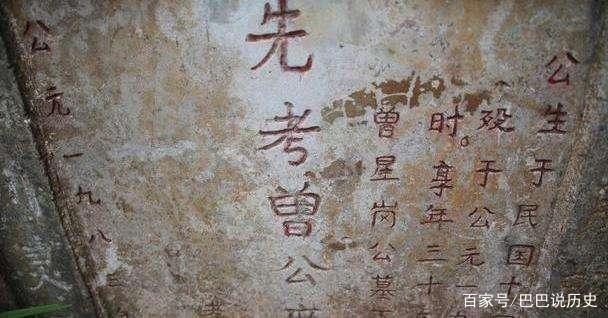 公生于民国十
殁于公元一
时。享年三十
曾星岗公墓
先考曾公
公元一九八
百家号/巴巴说历史